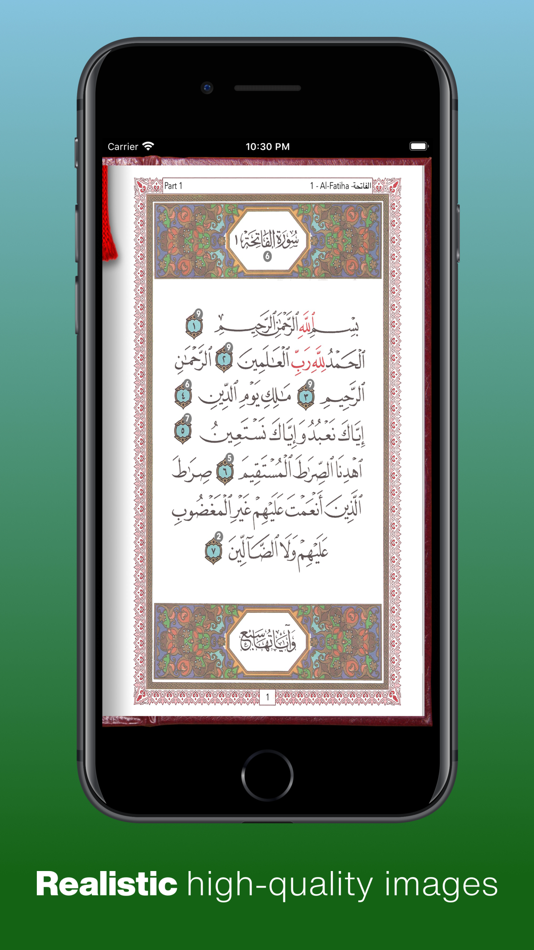 Carrier 10:30 PM
Part 1 1 - Al-Fatiha -الفاتحة
سُورَةُ الفَاتِحَة ١
6
بِسْمِ ٱللَّهِ ٱلرَّحْمَٰنِ ٱلرَّحِيمِ ١
ٱلْحَمْدُ لِلَّهِ رَبِّ ٱلْعَٰلَمِينَ ٢ ٱلرَّحْمَٰنِ
ٱلرَّحِيمِ ٣ مَٰلِكِ يَوْمِ ٱلدِّينِ ٤
إِيَّاكَ نَعْبُدُ وَإِيَّاكَ نَسْتَعِينُ ٥
ٱهْدِنَا ٱلصِّرَٰطَ ٱلْمُسْتَقِيمَ ٦ صِرَٰطَ
ٱلَّذِينَ أَنْعَمْتَ عَلَيْهِمْ غَيْرِ ٱلْمَغْضُوبِ
عَلَيْهِمْ وَلَا ٱلضَّآلِّينَ ٧
وَآيَاتُهَا سَبْعٌ
1
Realistic high-quality images